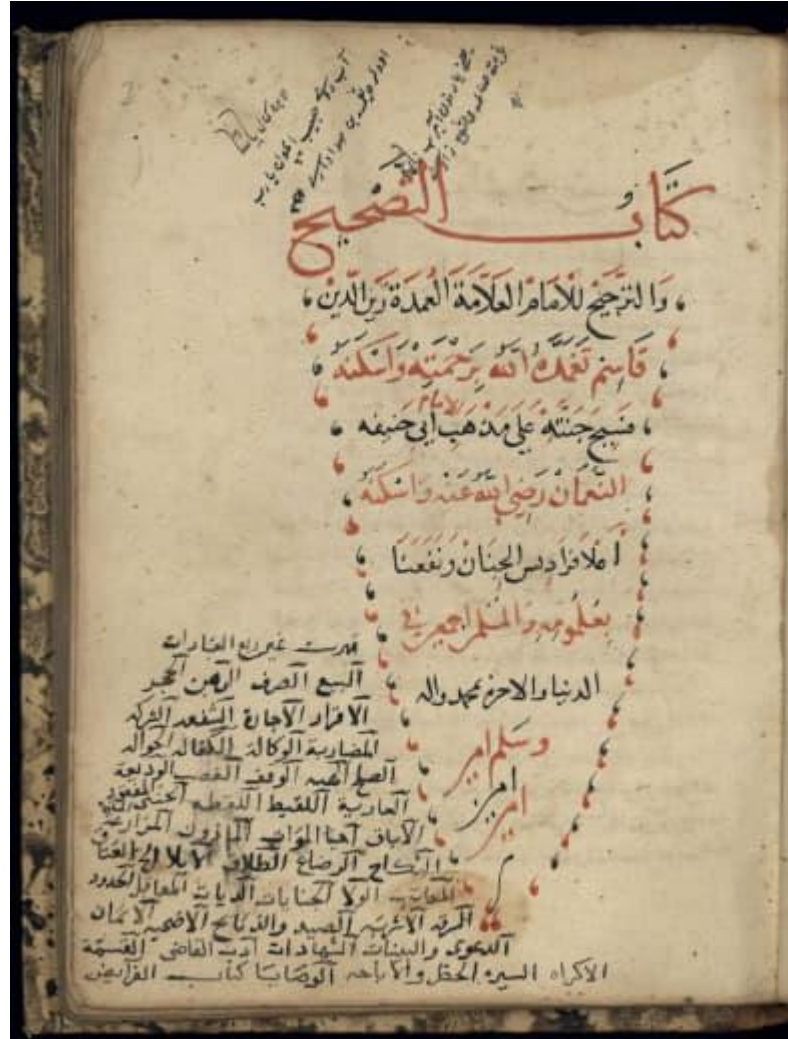 كتاب التصحيح
والترجيح للامام العلامة العمدة زين الدين
قاسم تغمده الله برحمته واسكنه
فسيح جنته على مذهب الامام ابي حنيفه
النعمان رضي الله عنه واسكنه
اعلا فراديس الجنان ونفعنا
بعلومه والمسلمين اجمعين في
الدنيا والاخرة بمحمد واله
وسلم امين
امين
امين
فهرست غير ربع العبادات
البيع الصرف الرهن الحجر
الاقرار الاجارة الشفعه الشركه
المضاربة الوكالة الكفالة الحواله
الصلح الهبه الوقف الغصب الوديعه
العارية اللقيط اللقطه الخنثى المفقود
الاباق احيا الموات الماذون المزارعه
النكاح الرضاع الطلاق الايلا
المكاتب الولا الجنايات الديات المعاقل الحدود
السرقه الاشربه الصيد والذبايح الاضحيه الايمان
الدعوى والبينات الشهادات ادب القاضي القسمة
الاكراه السير الحظر والاباحه الوصايا كتاب الفرايض